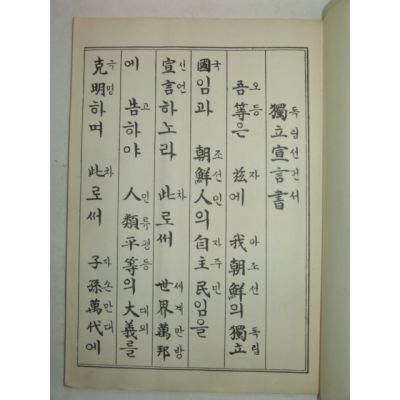 獨立宣言書
독립선언서
吾等은 玆에 我朝鮮의 獨立
오등 자 아조선 독립
國임과 朝鮮人의 自主民임을
국 조선인 자주민
宣言하노라 此로써 世界萬邦
선언 차 세계만방
에 告하야 人類平等의 大義를
고 인류평등 대의
克明하며 此로써 子孫萬代에
극명 차 자손만대